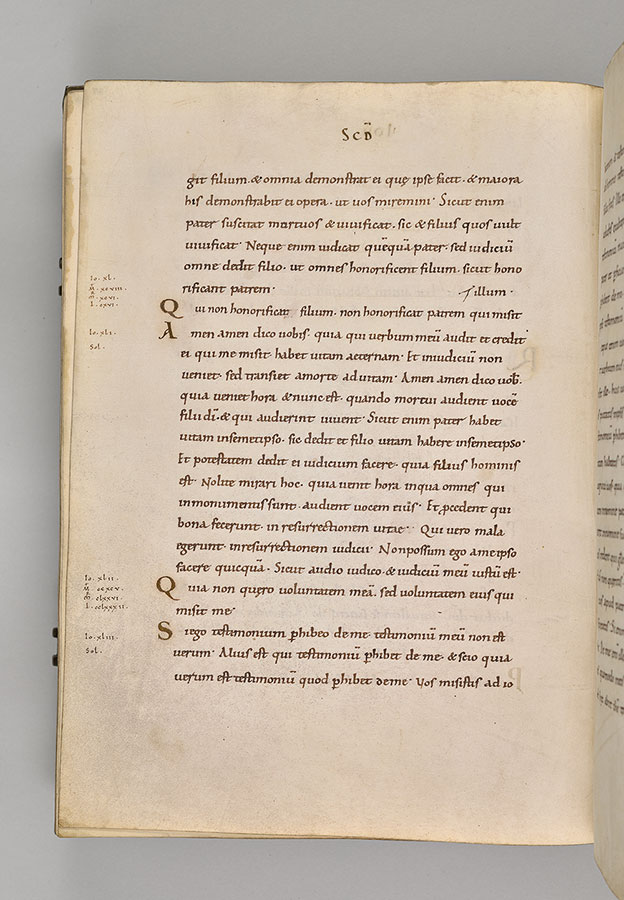 Scd̄
git filium · & omnia demonstrat ei quę ipse facit · & maiora
his demonstrabit ei opera · ut vos miremini · Sicut enim
pater suscitat mortuos & uiuificat · sic & filius quos uult
uiuificat · Neque enim iudicat quēquā pater · sed iudiciū
omne dedit filio · ut omnes honorificent filium · sicut hono
rificant patrem · illum ·
Io · XL ·
M̄ · XCVIII ·
M̄ · XCVI ·
L · CXVI ·
Qui non honorificat filium · non honorificat patrem qui misit
Io · XLI ·
Sol ·
Amen amen dico uobis · quia qui uerbum meū audit et credit
ei qui me misit · habet uitam aeternam · Et iniudiciū non
veniet · sed transiet amorte aduitam · Amen amen dico uob̄ ·
quia veniet hora & nunc est · quando mortui audient uocē
filii dī · & qui audierint uiuent · Sicut enim pater habet
uitam insemetipso · sic dedit et filio uitam habere insemetipso ·
Et potestatem dedit ei iudicium facere · quia filius hominis
est · Nolite mirari hoc · quia venit hora inqua omnes qui
inmonumentis sunt · audient vocem eius · Et p̄cedent qui
bona fecerunt · in resurrectionem uitae · Qui vero mala
egerunt · inresurrectionem iudicii · Non possum ego ame ipso
facere quicquā · Sicut audio iudico · & iudiciū meū iustū est ·
Io · XLII ·
M̄ · CCXCV ·
M̄ · CLXXVI ·
L · CCLXXXII ·
Quia non quero voluntatem meā · sed voluntatem eius qui
misit me ·
Io · XLIII ·
Sol ·
Si ego testimonium p̄hibeo de me · testimoniū meū non est
verum · Alius est qui testimoniū p̄hibet de me · & scio quia
verum est testimoniū quod p̄hibet deme · Vos misistis ad io